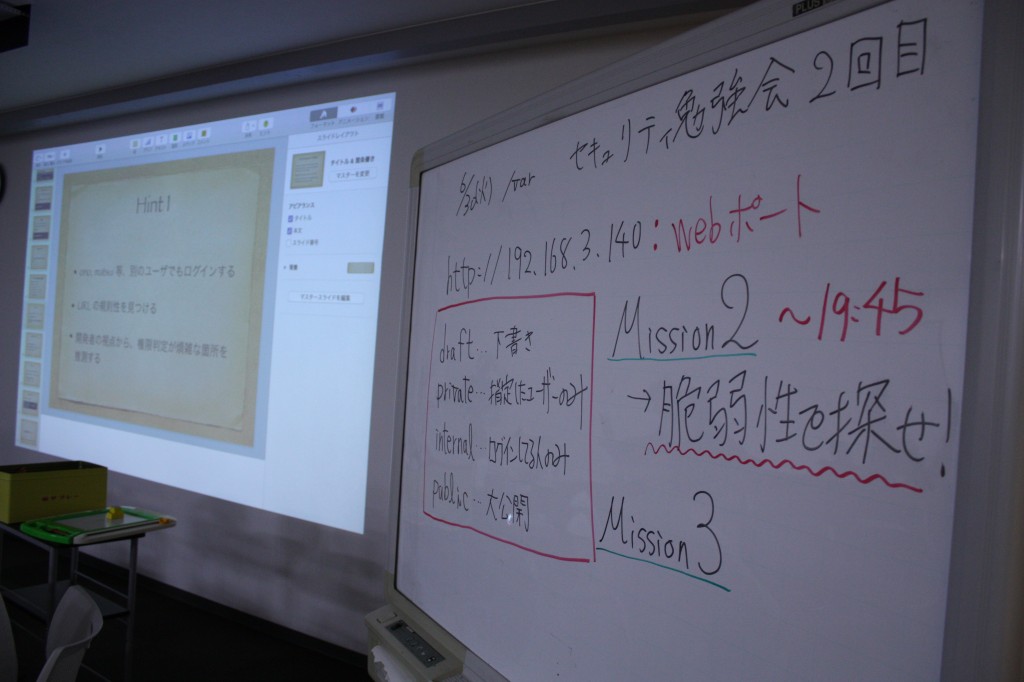 Hint1
別のユーザでもログインする
URL の規則性を見つける
開発者の視点から、権限判定が煩雑な箇所を
推測する
スライドレイアウト
タイトル & 箇条書き
マスターを変更
アピアランス
タイトル
本文
スライド番号
背景
マスタースライドを編集
PLUS
セキュリティ勉強会 2回目
/var
http://192.168.3.140:webポート
draft…下書き
private…指定したユーザーのみ
internal…ログインしてる人のみ
public…大公開
Mission2 ～19:45
→脆弱性を探せ!
Mission3